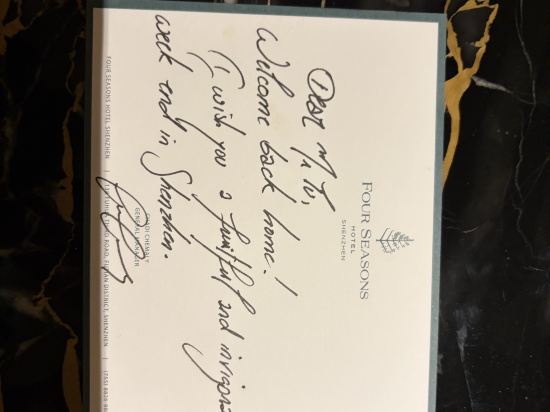 FOUR SEASONS
HOTEL
SHENZHEN
Dear Mr
Welcome back home!
I wish you a fruitful and invigora
week end in Shenzhen.
CHEMALY
GENERAL MANAGER
FOUR SEASONS HOTEL SHENZHEN | ROAD, FUTIAN DISTRICT, SHENZHEN | (755) 8826 88